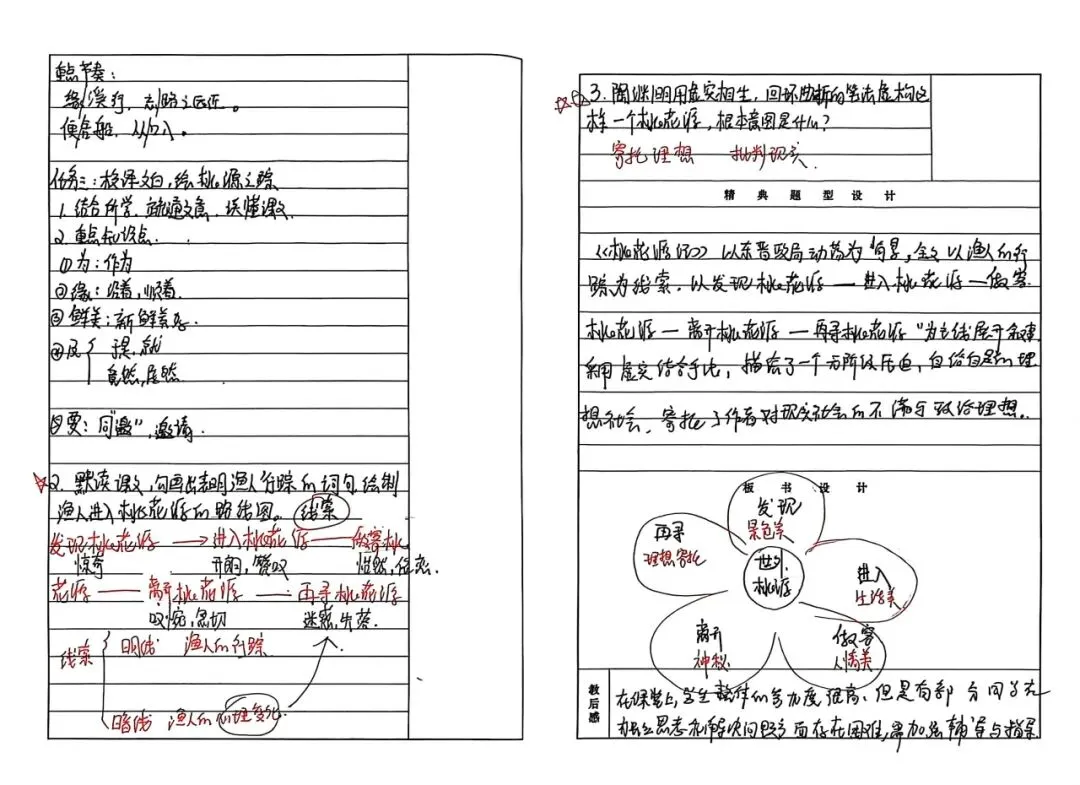 重点节奏：
缘/溪行，忘/路之远近。
便/舍船，从/口入。
任务三：梳译文白，绘桃源之踪
1.结合所学，疏通文意，读懂课文
2.重点知识点.
①为：作为
②缘：沿着，顺着.
③鲜美：新鲜美好.
④及 到，就
竟然，居然
要：同"邀"，邀请.
☆2.默读课文，勾画出表明渔人行踪的词句，绘制
渔人进入桃花源的路线图。 线索
发现桃花源→进入桃花源——做客桃
惊奇 开朗，赞叹 怡然，
花源——离开桃花源——再寻桃花源
叹惋，急切 迷惑，失落.
线索 明线 渔人的行踪
暗线 渔人的心理变化.
☆3.陶渊明用虚实相生，回环曲折的笔法虚构这
样一个桃花源，根本意图是什么？
寄托理想 批判现实.
精典题型设计
《桃花源记》以东晋政局动荡为背景，全文以渔人的行
踪为线索，以发现桃花源—进入桃花源—做客
桃花源—离开桃花源—再寻桃花源"为主线展开叙事
采用虚实结合手法，描绘了一个无阶级压迫，自给自足的理
想社会，寄托了作者对现实社会的不满与政治理想.
板书设计
发现
景色美
再寻
理想寄托
世外
桃源
进入
生活美
离开
神秘
做客
人情美
教后感
在课堂上，学生整体的参加度很高，但是有部分同学在
思考和解决问题方面存在困难，需加强辅导与指导